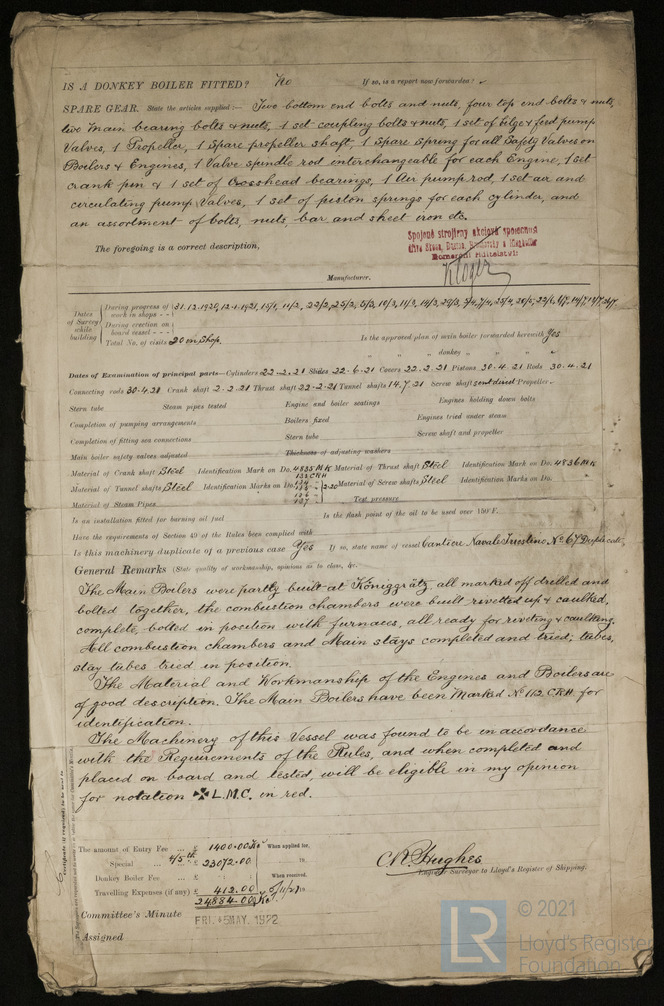 IS A DONKEY BOILER FITTED? No If so, is a report now forwarded?
SPARE GEAR. State the articles supplied:— Two bottom end bolts and nuts, four top end bolts & nuts,
two Main bearing bolts & nuts, 1 set coupling bolts & nuts, 1 set of bilge & feed pump
Valves, 1 Propeller, 1 Spare propeller shaft, 1 Spare spring for all Safety Valves on
Boilers & Engines, 1 Valve spindle rod interchangeable for each Engine, 1 set
crank pin & 1 set of Crosshead bearings, 1 Air pump rod, 1 set air and
circulating pump Valves, 1 set of piston springs for each cylinder, and
an assortment of bolts, nuts, bar and sheet iron etc.
The foregoing is a correct description,
Spojené strojírny akciová společnost
Manufacturer.
Dates of Survey while building
During progress of work in shops - - 31.12.1920, 12.1.1921, 15/1, 11/2, 22/2, 25/2, 5/3, 10/3, 11/3, 14/3
During erection on board vessel - - -
Total No. of visits 20 in Shop. Is the approved plan of main boiler forwarded herewith Yes
" " " donkey " " "
Dates of Examination of principal parts—Cylinders 22-2-21 Slides 22-6-21 Covers 22.2.21 Pistons 30.4.21 Rods 30.4.21
Connecting rods 30.4.21 Crank shaft 2-2-21 Thrust shaft 22-2-21 Tunnel shafts 14.7.21 Screw shaft Propeller
Stern tube Steam pipes tested Engine and boiler seatings Engines holding down bolts
Completion of pumping arrangements Boilers fixed Engines tried under steam
Completion of fitting sea connections Stern tube Screw shaft and propeller
Main boiler safety valves adjusted Thickness of adjusting washers
Material of Crank shaft Steel Identification Mark on Do. 4835 MK Material of Thrust shaft Steel Identification Mark on Do. 4836 MK
Material of Tunnel shafts Steel Identification Marks on Do. Material of Screw shafts Steel Identification Marks on Do.
Material of Steam Pipes Test pressure
Is an installation fitted for burning oil fuel Is the flash point of the oil to be used over 150°F.
Have the requirements of Section 49 of the Rules been complied with
Is this machinery duplicate of a previous case Yes If so, state name of vessel Cantiere Navale Triestino No 67
General Remarks (State quality of workmanship, opinions as to class, &c.
The Main Boilers were partly built at Königgrätz, all marked off drilled and
bolted together, the combustion chambers were built rivetted up & caulked,
complete, bolted in position with furnaces, all ready for riveting & caulking.
All combustion chambers and Main stays completed and tried; tubes,
stay tubes tried in position.
The Material and Workmanship of the Engines and Boilers are
of good description. The Main Boilers have been Marked No 112 CRH for
identification.
The Machinery of this Vessel was found to be in accordance
with the Requirements of the Rules, and when completed and
placed on board and tested, will be eligible in my opinion
for notation ✠ L.M.C. in red.
The amount of Entry Fee ... £ 1400.00 Kč When applied for,
Special ... 4/5th £ 23072.00
Donkey Boiler Fee ... £ When received,
Travelling Expenses (if any) £ 412.00
24884.00 Kč
Engineer Surveyor to Lloyd's Register of Shipping.
Committee's Minute FRI. 5 MAY. 1922
Assigned
LR
© 2021
Lloyd's Register
Foundation